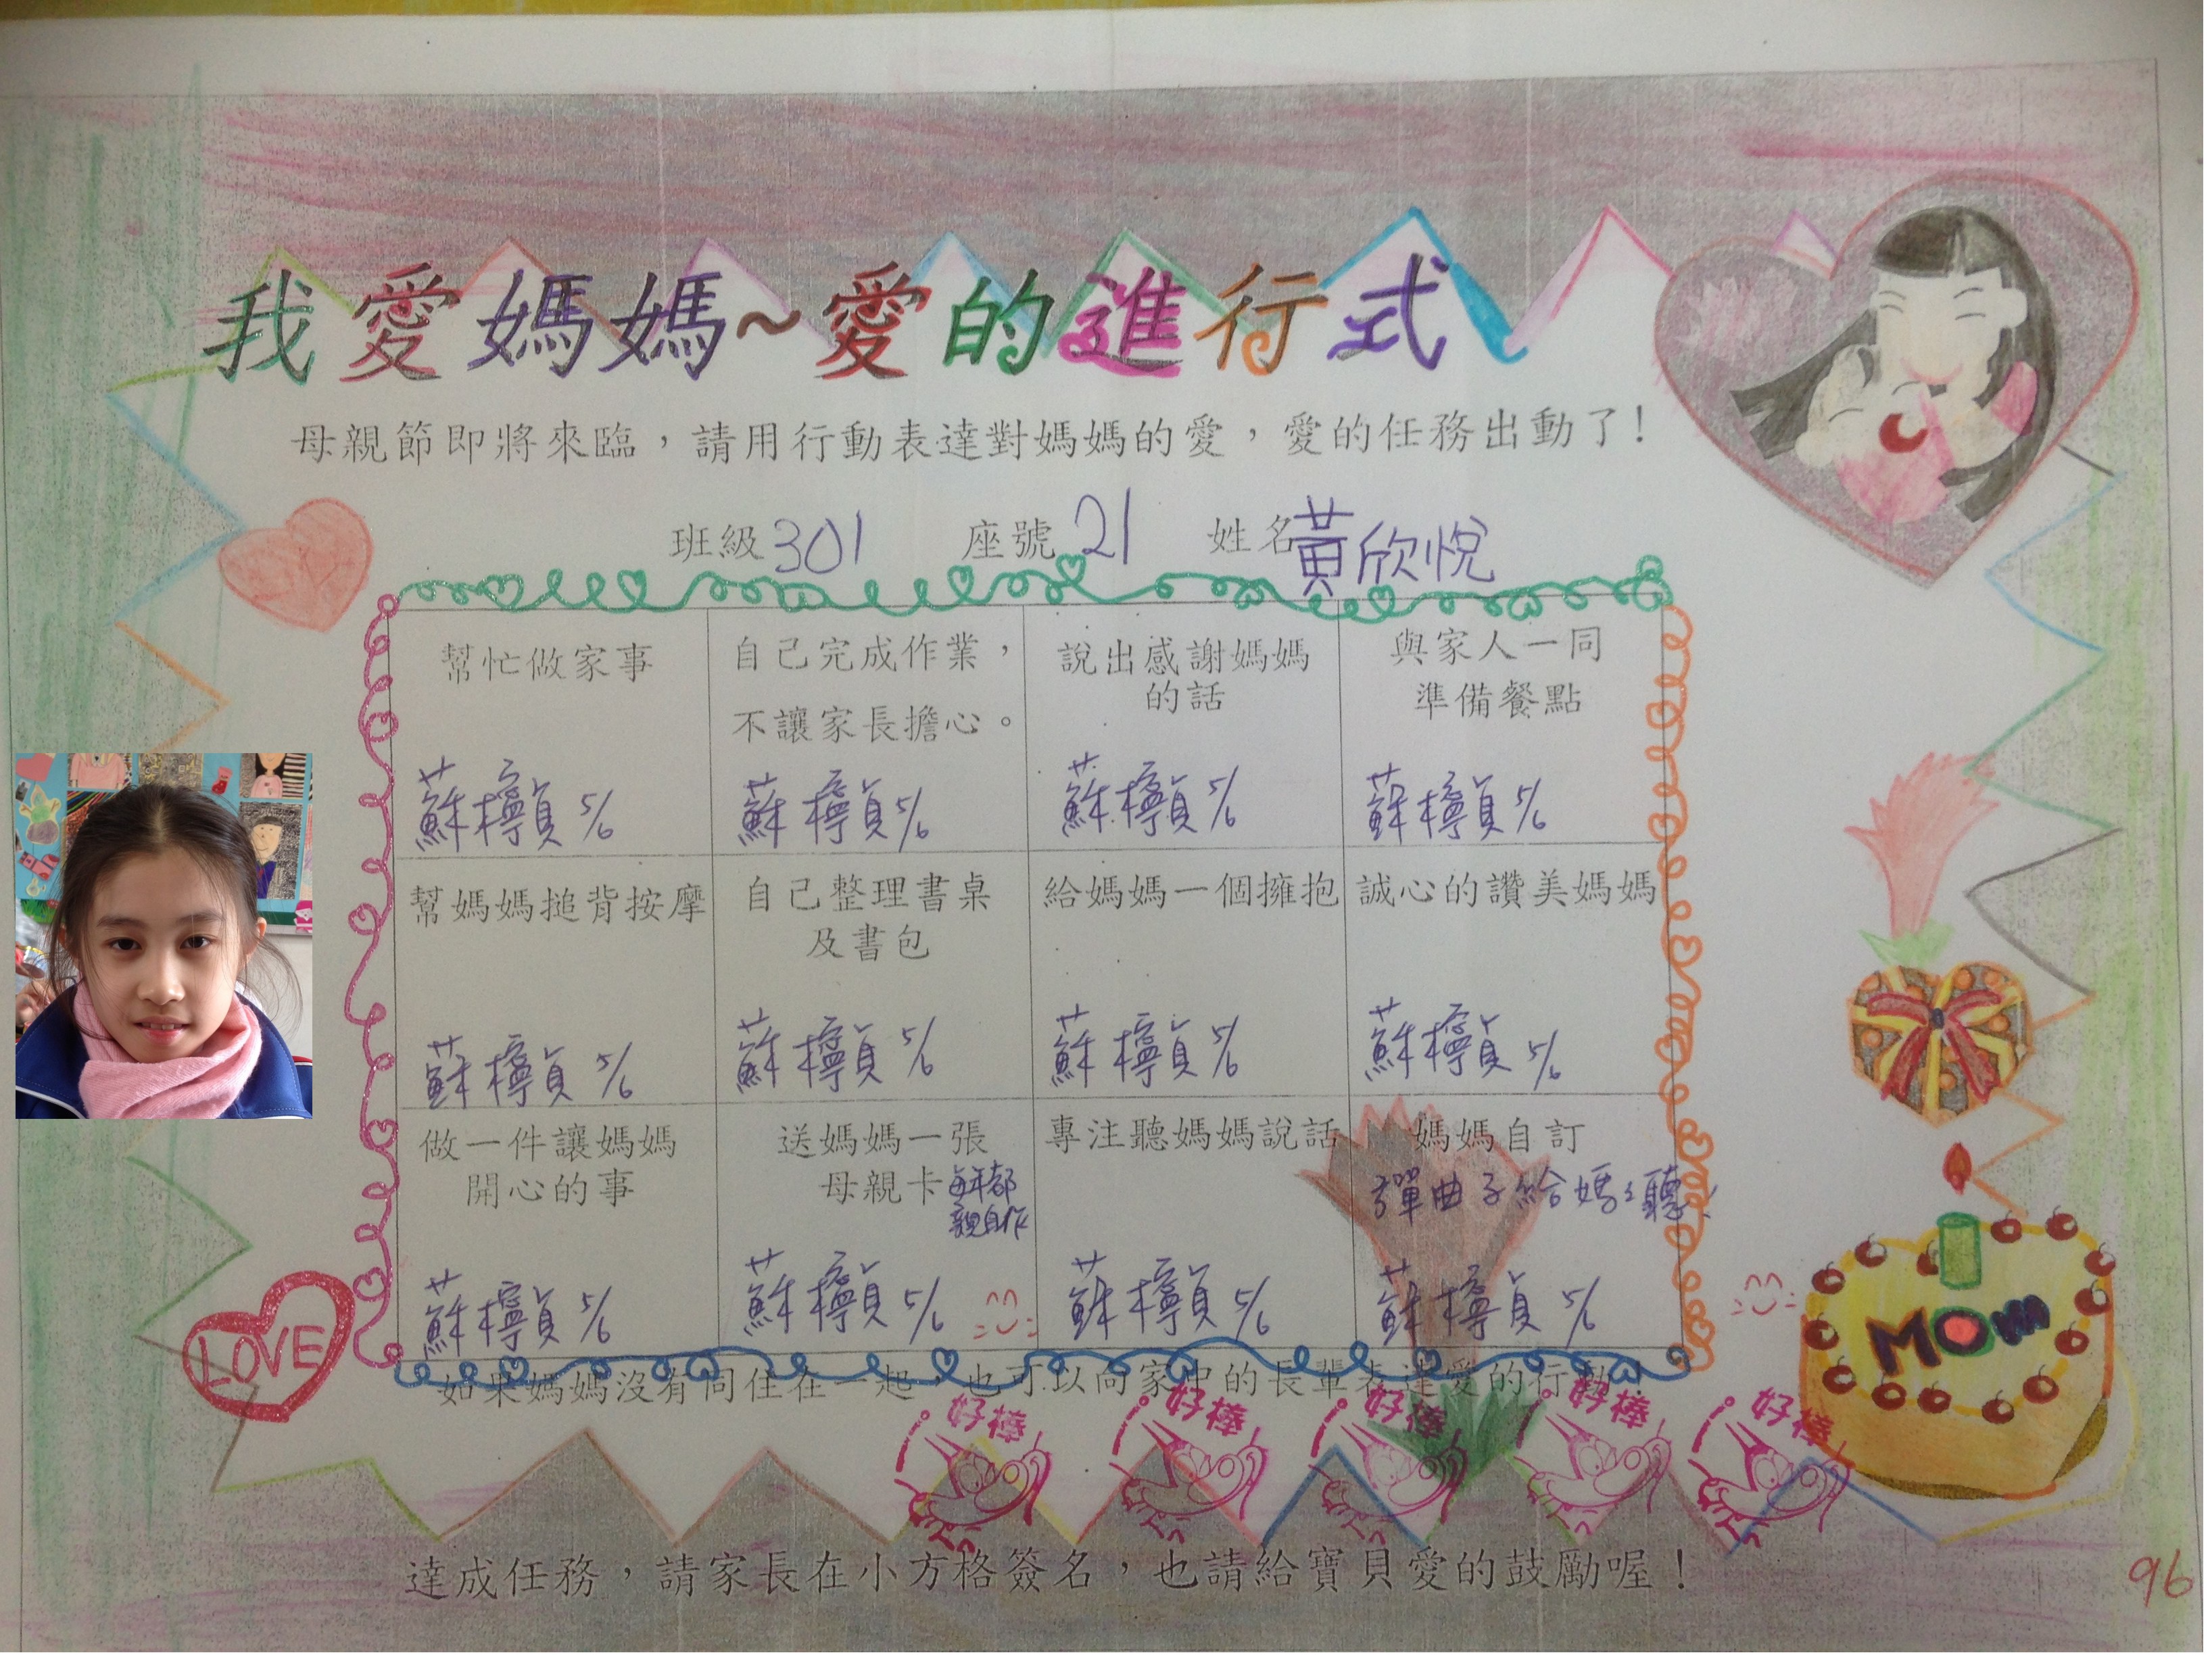 我愛媽媽~愛的進行式
母親節即將來臨，請用行動表達對媽媽的愛，愛的任務出動了！
班級301 座號21 姓名黃欣悅
幫忙做家事
蘇檸貞 5/6
自己完成作業，
不讓家長擔心。
蘇檸貞 5/6
說出感謝媽媽
的話
蘇檸貞 5/6
與家人一同
準備餐點
蘇檸貞 5/6
幫媽媽搥背按摩
蘇檸貞 5/6
自己整理書桌
及書包
蘇檸貞 5/6
給媽媽一個擁抱
蘇檸貞 5/6
誠心的讚美媽媽
蘇檸貞 5/6
做一件讓媽媽
開心的事
蘇檸貞 5/6
送媽媽一張
母親卡 每年都
親自作
蘇檸貞 5/6
專注聽媽媽說話
蘇檸貞 5/6
媽媽自訂
彈曲子給媽媽聽！
蘇檸貞 5/6
LOVE
MOm
如果媽媽沒有同住在一起，也可以向家中的長輩表達愛的行動！
好棒 好棒 好棒 好棒 好棒
達成任務，請家長在小方格簽名，也請給寶貝愛的鼓勵喔！
96